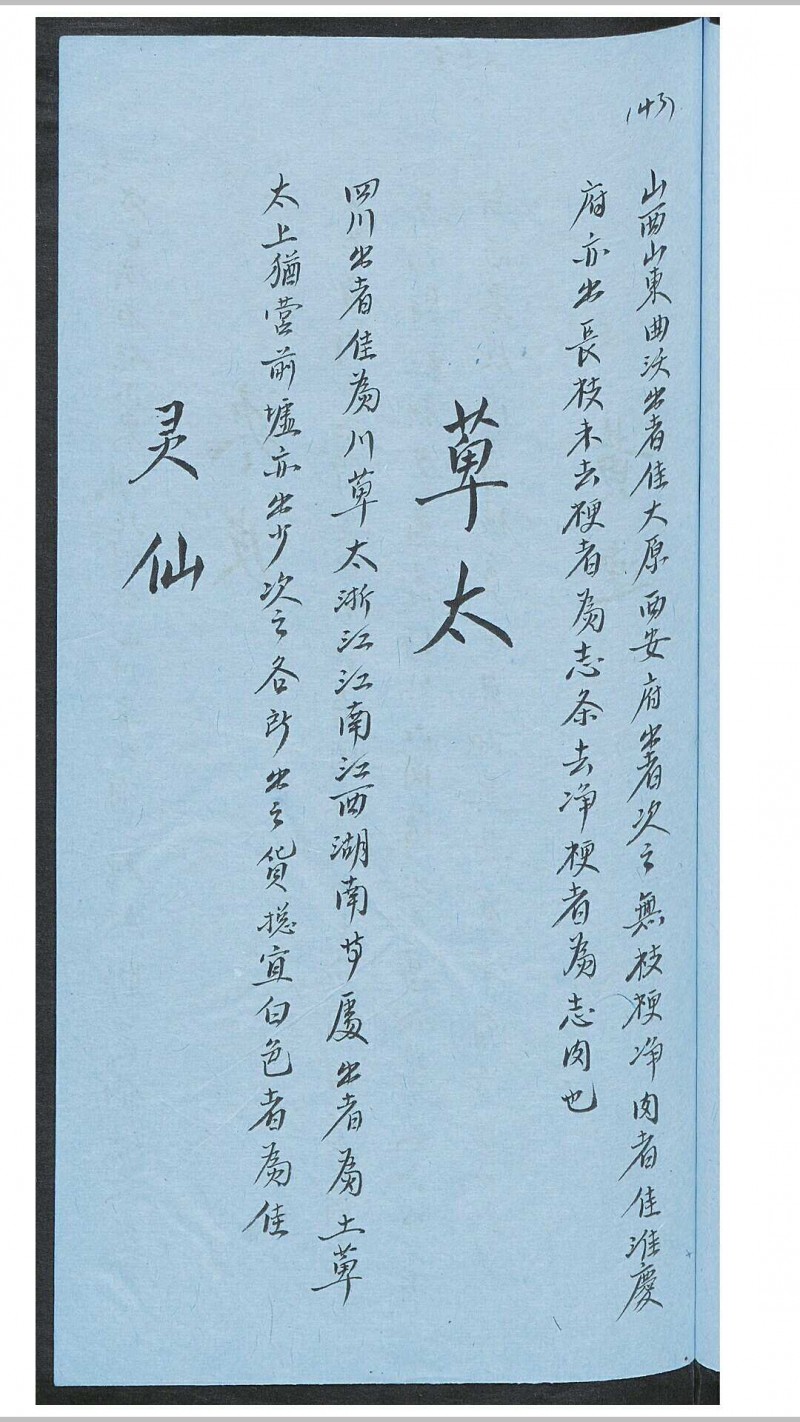 (43)
山西山東曲沃出者佳大原西安府出者次之無枝梗净肉者佳淮慶
府亦出長枝未去梗者為志条去净梗者為志肉也
萆太
四川出者佳為川萆太浙江江南江西湖南等處出者為土萆
太上猶营前墟亦出少次之各所出之貨摠宜白色者為佳
灵仙